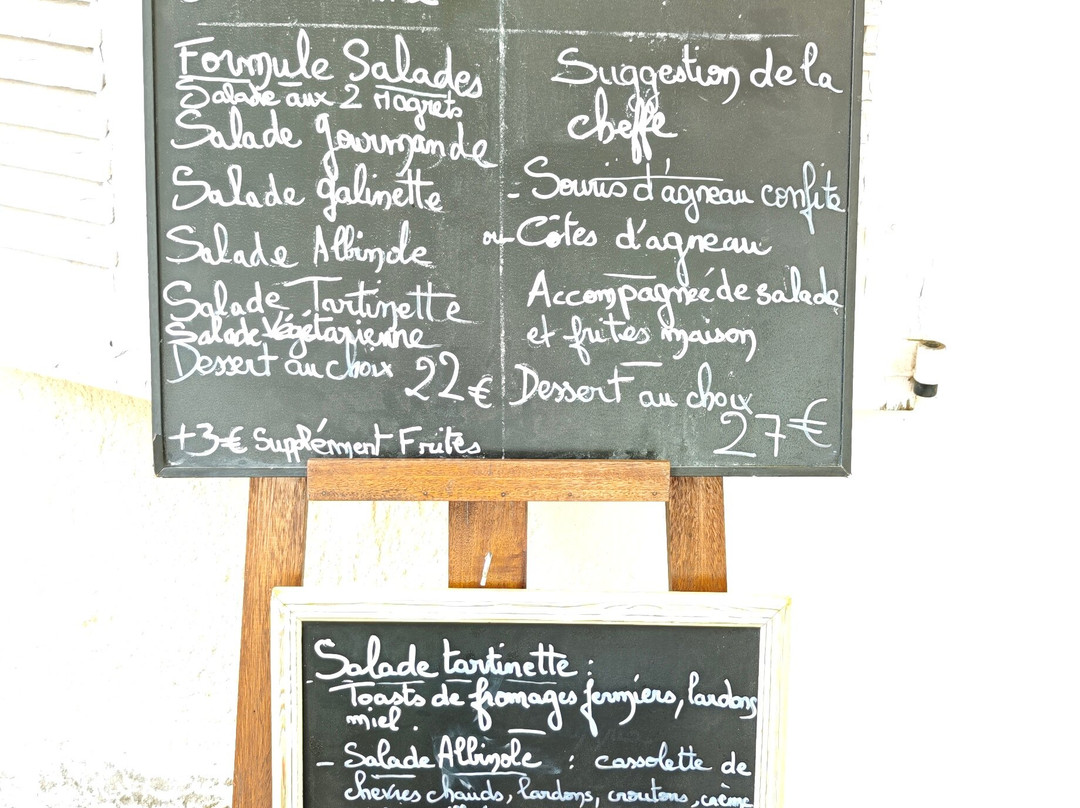 Formule Salades
Salade aux 2 Magrets
Salade gourmande
Salade galinette
Salade Albinole
Salade Tartinette
Salade Végétarienne
Dessert au choix 22€
+3€ Supplément Frites
Suggestion de la
cheffe
- Souris d'agneau confite
ou Côtes d'agneau
Accompagnée de salade
et frites maison
Dessert au choix
27€
Salade tartinette :
Toasts de fromages fermiers, lardons
miel.
- Salade Albinole : cassolette de
chèvres chauds, lardons, croutons, crème